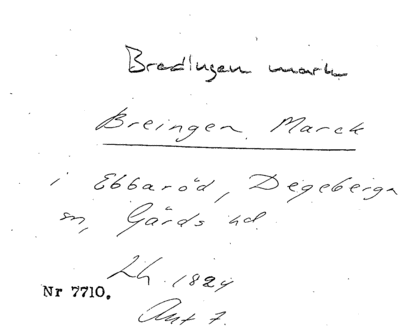 Bredingen mark
Breingen Marck
i Ebbaröd, Degeberga
sn, Gärds hd
Lh. 1824
Nr 7710.
Akt 7.